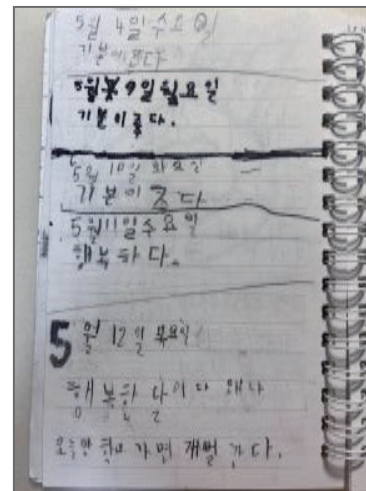 5월 4일 수요일
기분이 좋다
5월 9일 월요일
기분이 좋다.
5월 10일 화요일
기분이 좋다
5월 11일 수요일
행복하다.
5월 12일 목요일
행복하다
가면 간다.